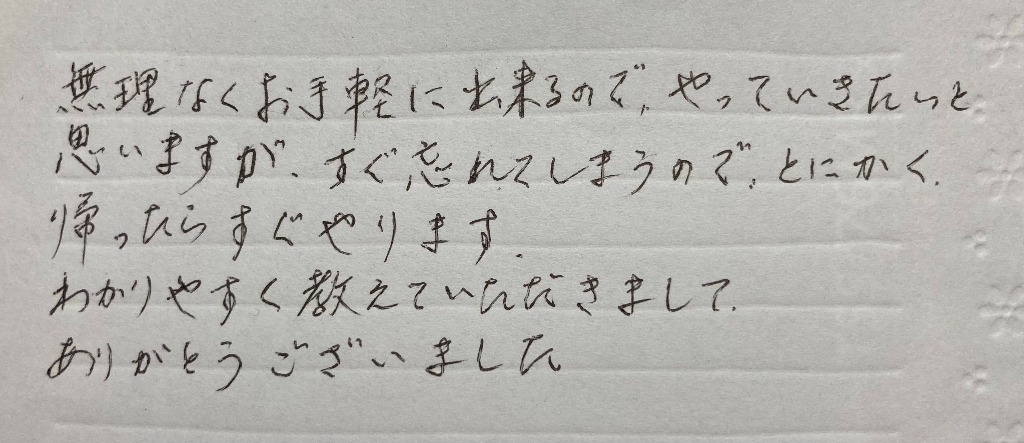 無理なくお手軽に出来るので、やっていきたいと
思いますが、すぐ忘れてしまうので、とにかく、
帰ったらすぐやります。
わかりやすく教えていただきまして、
ありがとうございました